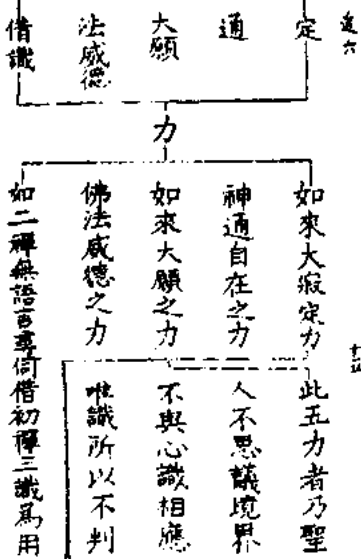 定
通
大願
法威德
借識
力
如來大寂定力
神通自在之力
如來大願之力
佛法威德之力
如二禪無語言尋伺借初禪三識爲用
此五力者乃聖
人不思議境界
不與心識相應
唯識所以不判